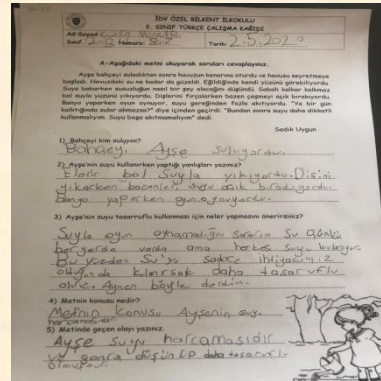 İDV ÖZEL BİLKENT İLKOKULU
2. SINIF TÜRKÇE ÇALIŞMA KAĞIDI
Ad-Soyad:
Sınıf: Numara: Tarih:
A-Aşağıdaki metni okuyarak soruları cevaplayınız.
Ayşe bahçeyi suladıktan sonra havuzun kenarına oturdu ve havuzu seyretmeye
başladı. Havuzdaki su ne kadar da güzeldi. Eğildiğinde kendi yüzünü görebiliyordu.
Suya bakarken susuzluğun nasıl bir şey olacağını düşündü. Sabah kalkar kalkmaz
bol suyla yüzünü yıkıyordu. Dişlerini fırçalarken bazen çeşmeyi açık bırakıyordu.
Banyo yaparken oyun oynuyor, suyu gereğinden fazla akıtıyordu. "Ya bir gün
kalktığımda sular olmazsa?" diye içinden geçirdi. "Bundan sonra suyu daha dikkatli
kullanmalıyım. Suyu boşa akıtmamalıyım" dedi.
Sadık Uygun
1) Bahçeyi kim suluyor?
Bahçey, Ayşe suluyordu.
2) Ayşe'nin suyu kullanırken yaptığı yanlışları yazınız?
bol Suyla yıkıyordu. Dişini
yıkarken
Banyo yaparken oyun oynuyordu.
3) Ayşe'nin suyu tasarruflu kullanması için neler yapmasını önerirsiniz?
Suyla oyun Su
her yerde varda ama herkes Suyu
Bu yüzden Su'yu sadece ihtiyacımız
olduğunda daha tasarruflu
oluruz. Aynen böyle derdim.
4) Metnin konusu nedir?
Metnin konusu Ayşenin suyu
harcaması
5) Metinde geçen olayı yazınız.
Ayşe suyu harcamasıdır
ve sonra düşünüp daha tasarruflu
olmuştur.